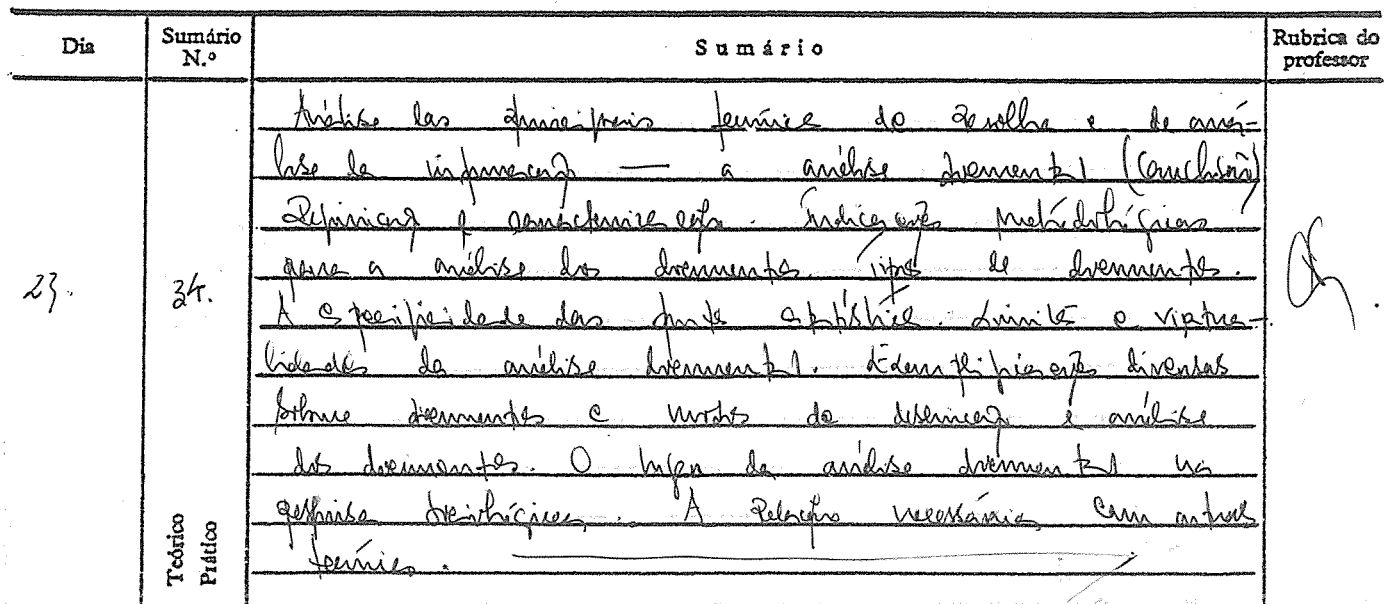 Dia
Sumário N.º
Sumário
Rubrica do professor
Análise das principais técnicas de recolha e de aná-
lise da informação — a análise documental (conclusão)
Definição e caracterização. Indicações metodológicas
para a análise dos documentos. Tipos de documentos.
23. 34. A especificidade das fontes estatísticas. Limites e virtua-
lidades da análise documental. Exemplificações diversas
sobre documentos e modos de descrição e análise
dos documentos. O lugar da análise documental na
pesquisa sociológica. A relação necessária com outras
técnicas.
Teórico
Prático